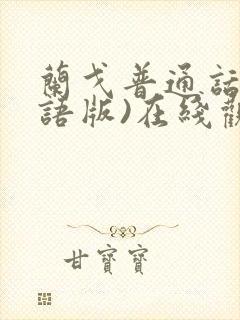 蘭戈普通話
語版)在綫
甘寶寶